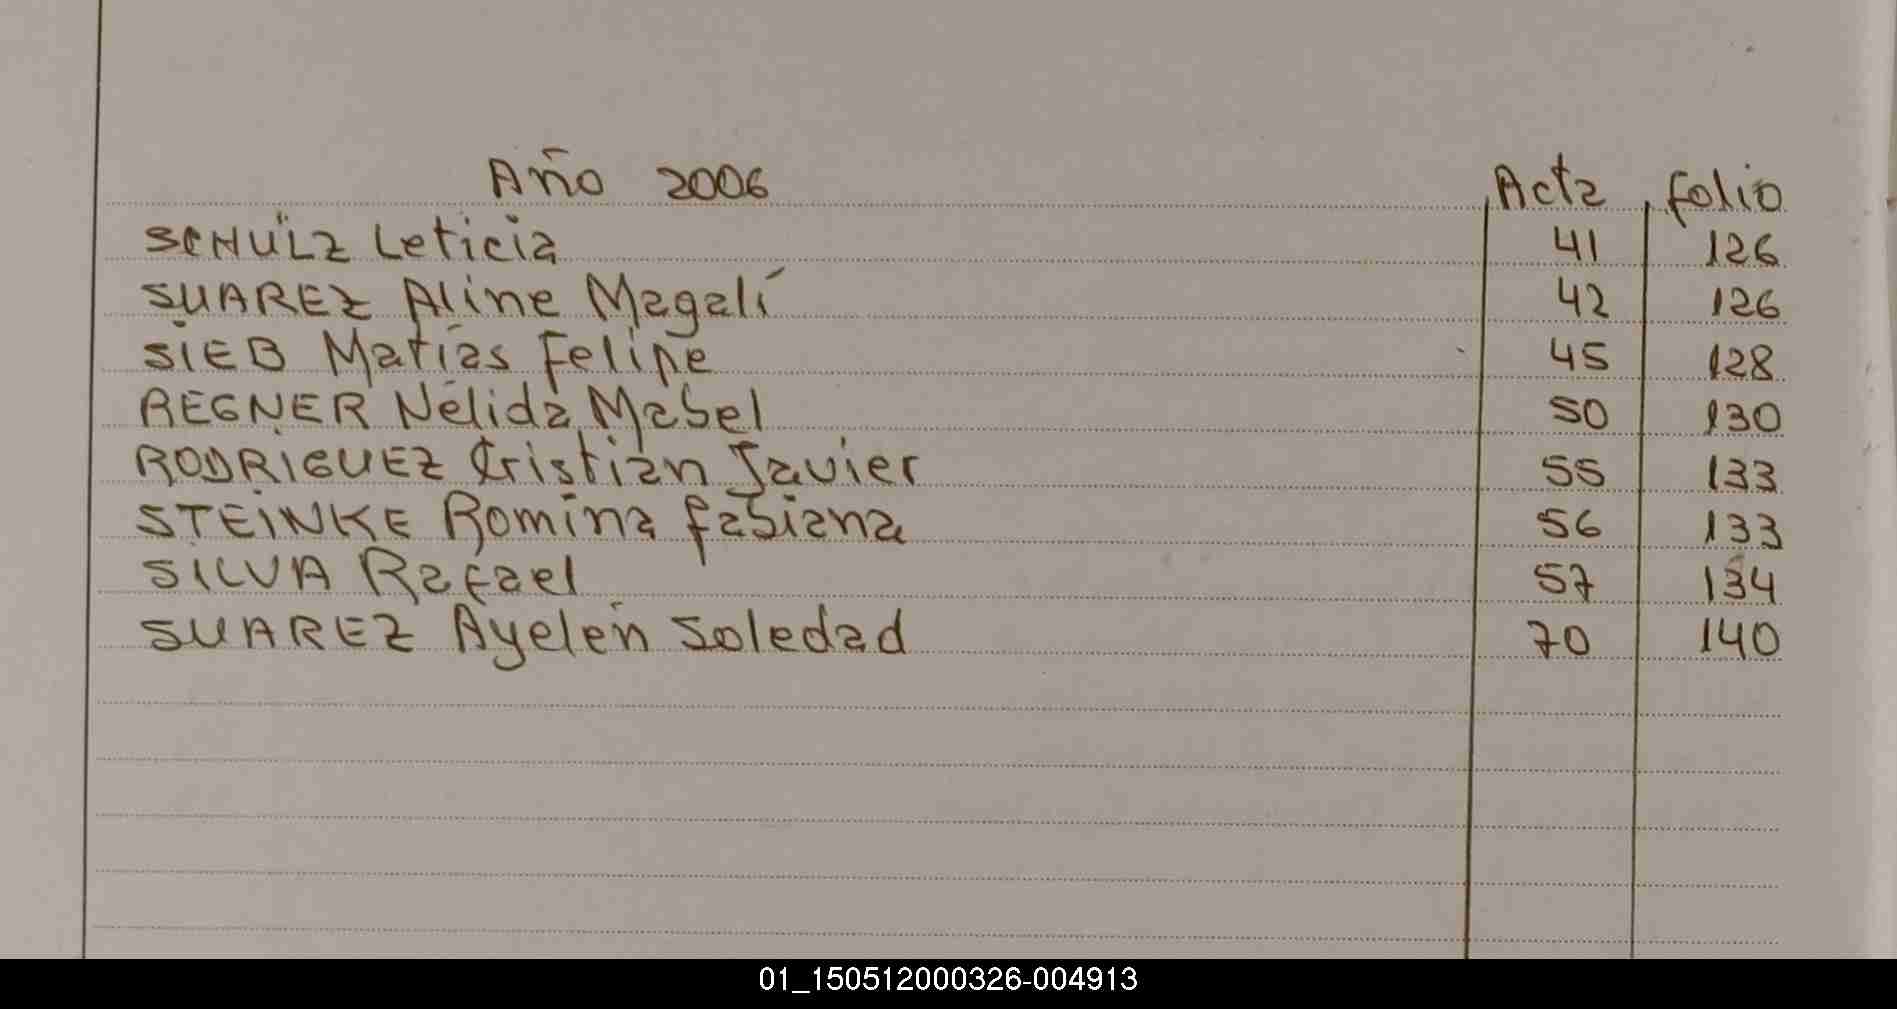 Año 2006 Acta folio
SCHÜLZ Leticia 41 126
SUAREZ Aline Magalí 42 126
SIEB Matías Felipe 45 128
REGNER Nélida Mabel 50 130
RODRIGUEZ Cristian Javier 55 133
STEINKE Romina fabiana 56 133
SILVA Rafael 57 134
SUAREZ Ayelén Soledad 70 140
01_150512000326-004913